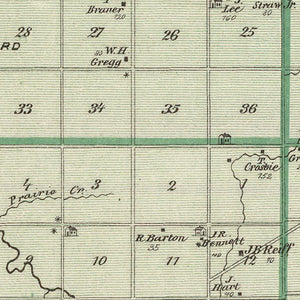 Braner
120
Lee
160
Straw Jr.
80
28
27
26
25
RD
80 W.H.
Gregg
33
34
35
36
T.
Crosbie
152
4
3
2
Prairie Cr.
R. Barton
35
J.R.
Bennett
40
9
10
11
12
J.B. Reiff
70
J.
Hart
40